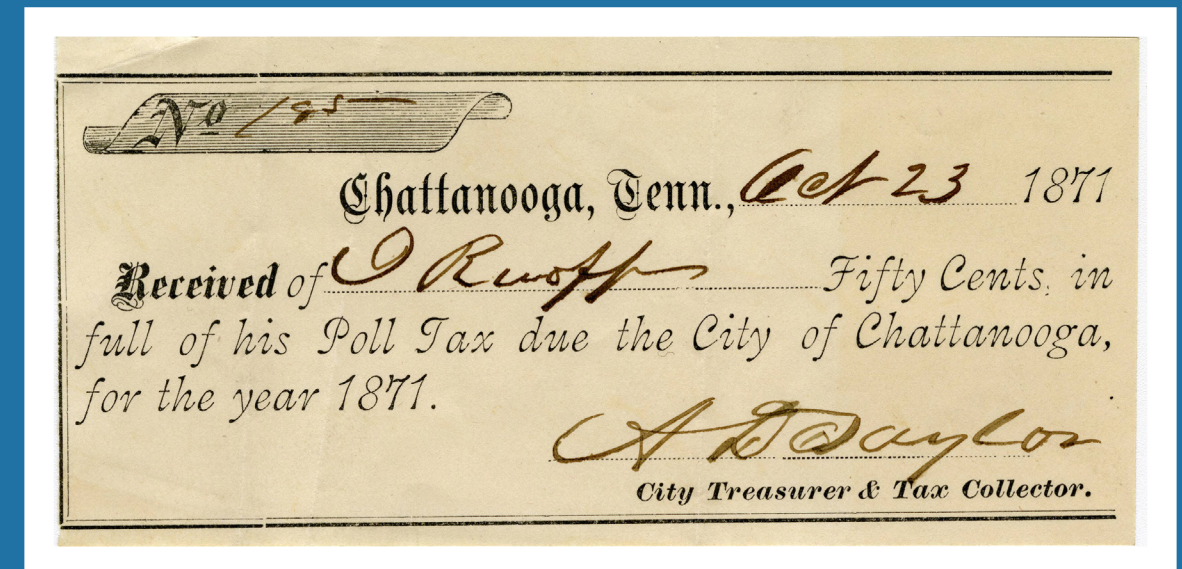 No 185
Chattanooga, Tenn., Oct 23 1871
Received of Fifty Cents, in
full of his Poll Tax due the City of Chattanooga,
for the year 1871.
A D Taylor
City Treasurer & Tax Collector.